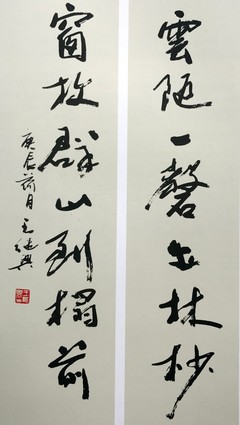 雲随一磬出林杪
窗放群山到榻前
庚辰荷月 王興